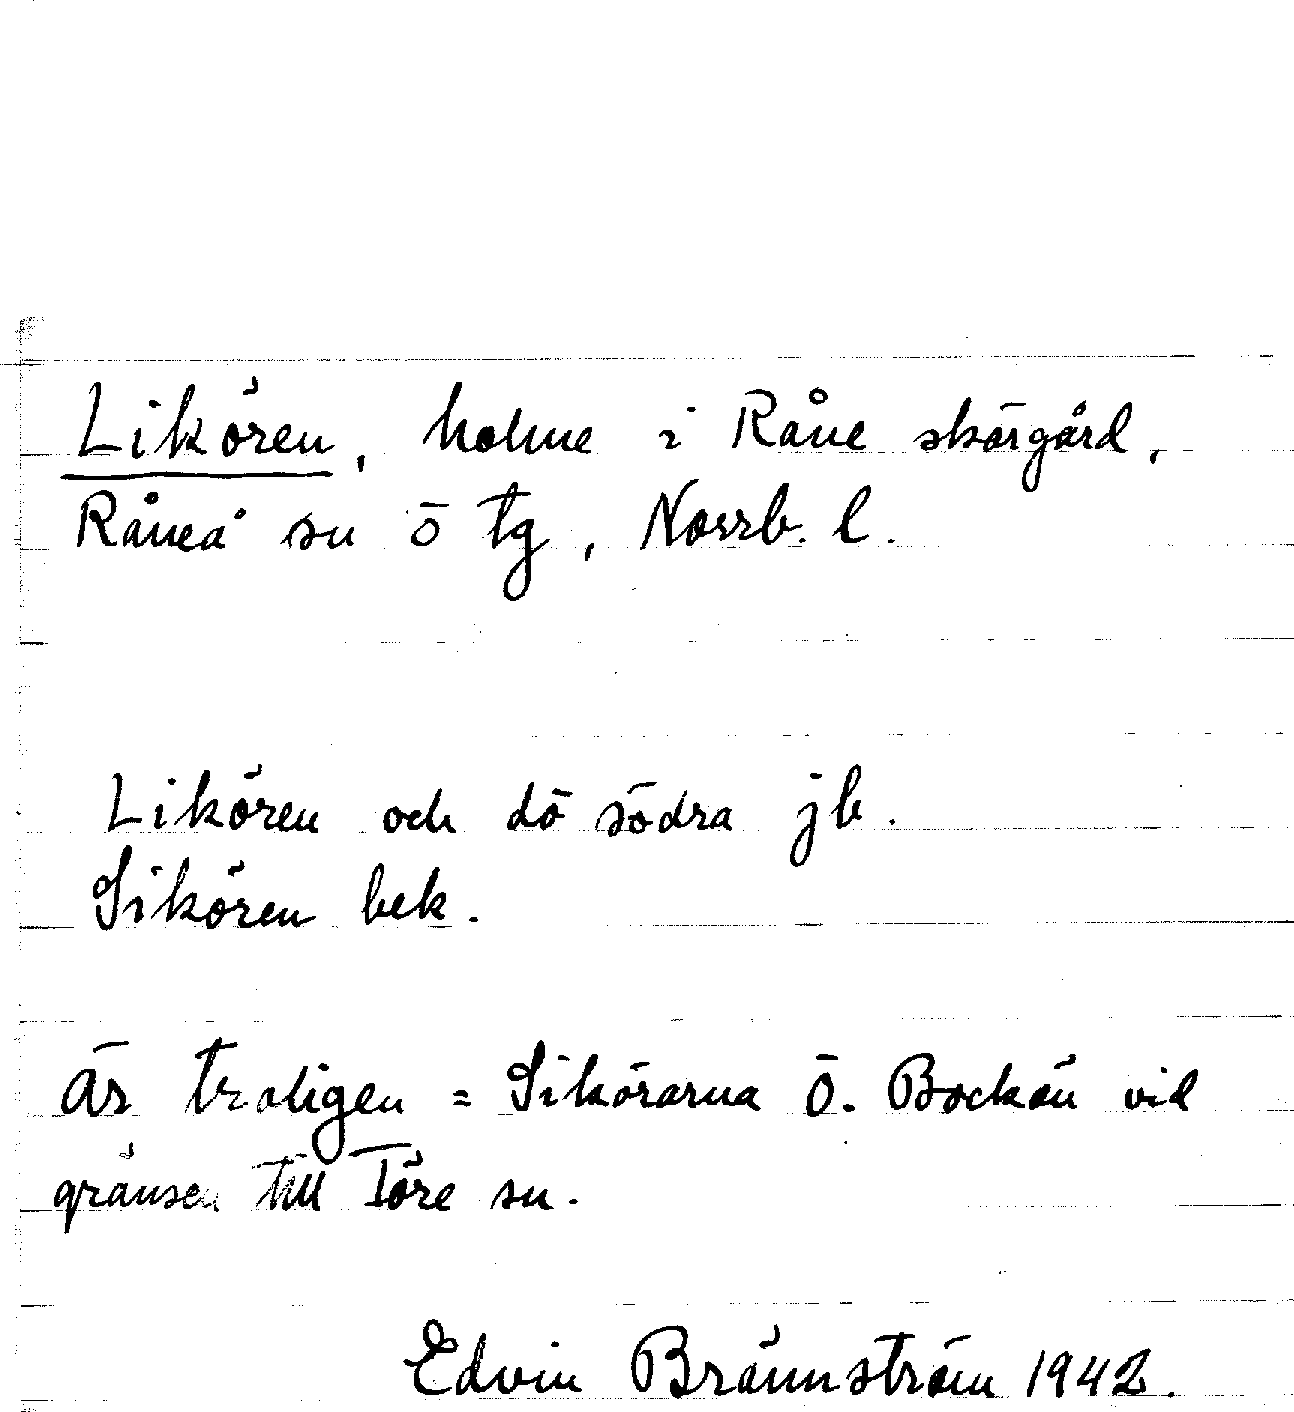 Likören, holme i Råne skärgård,
Råneå sn ö tg, Norrb. l.
Likören och dö södra jb.
Sikören bek.
Är troligen = Sikörarna Ö. Bockön vid
gränsen till Töre sn.
Edvin Brännström 1942.